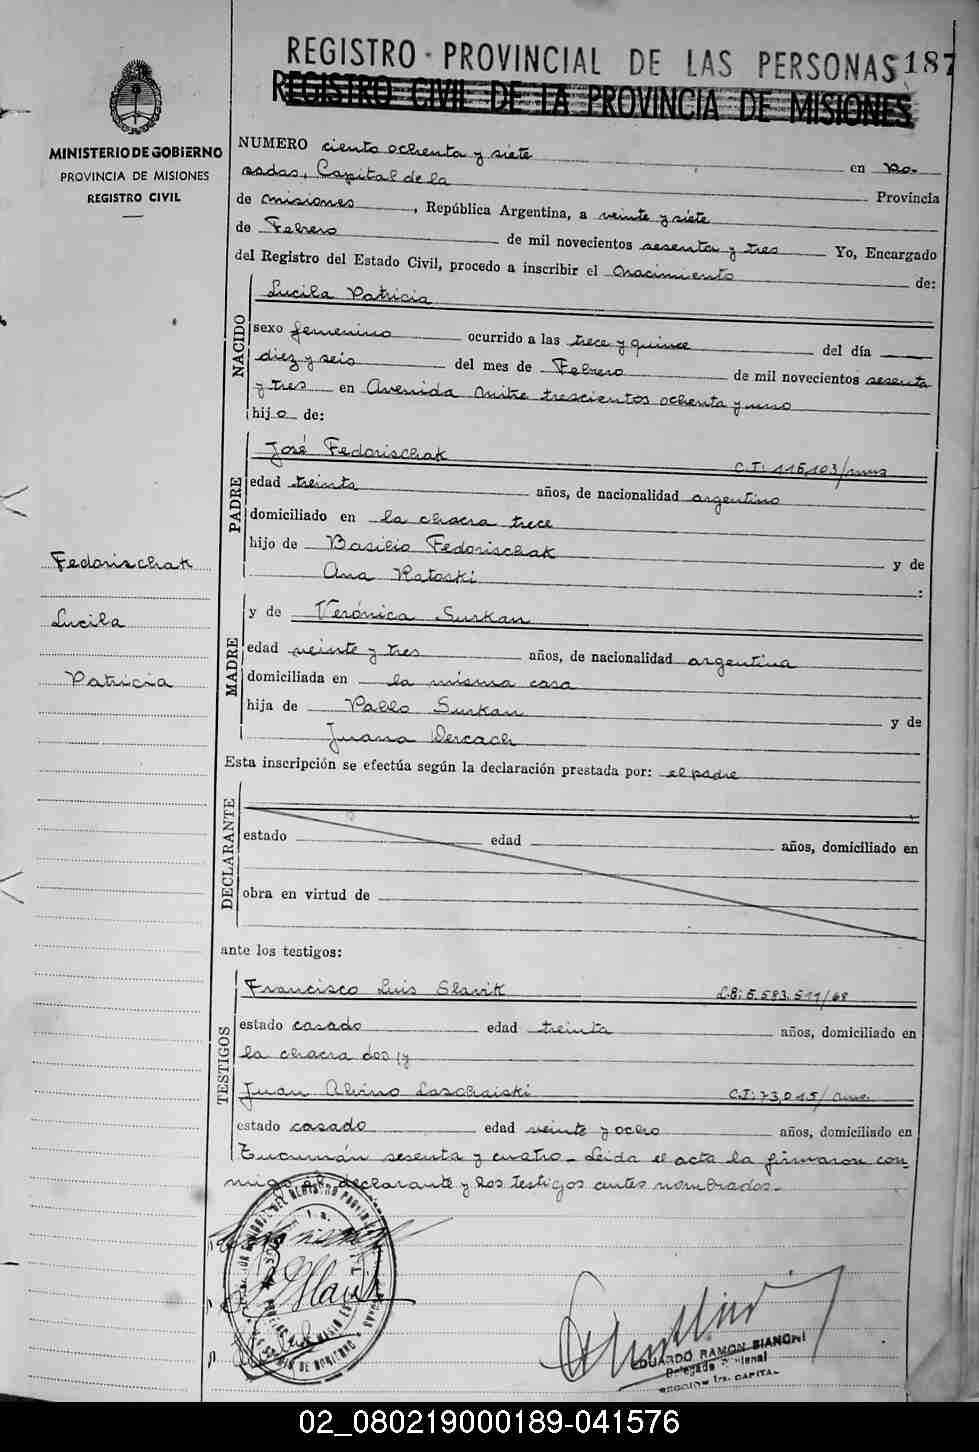 REGISTRO PROVINCIAL DE LAS PERSONAS 187
REGISTRO CIVIL DE LA PROVINCIA DE MISIONES
MINISTERIO DE GOBIERNO
PROVINCIA DE MISIONES
REGISTRO CIVIL
NUMERO ciento ochenta y siete en Po-
sadas, Capital de la Provincia
de misiones, República Argentina, a veinte y siete
de Febrero de mil novecientos sesenta y tres Yo, Encargado
del Registro del Estado Civil, procedo a inscribir el nacimiento de:
NACIDO
Lucila Patricia
sexo femenino ocurrido a las trece y quince del día
diez y seis del mes de Febrero de mil novecientos sesenta
y tres en Avenida mitre trescientos ochenta y uno
hijo de:
PADRE
José Fedorischak C.I: 116,103/mnes
edad treinta años, de nacionalidad argentino
domiciliado en la chacra trece
hijo de Basilio Fedorischak y de
Ana Ratoski :
Fedorischak
Lucila
Patricia
MADRE
y de Verónica Surkan
edad veinte y tres años, de nacionalidad argentina
domiciliada en la misma casa
hija de Pablo Surkan y de
Juana Dercach
Esta inscripción se efectúa según la declaración prestada por: el padre
DECLARANTE
estado edad años, domiciliado en
obra en virtud de
ante los testigos:
TESTIGOS
Francisco Luis Slavik L.E: 5.583.511/68
estado casado edad treinta años, domiciliado en
la chacra dos y
Juan Alvino Laschaiski C.I: 73,015/
estado casado edad veinte y ocho años, domiciliado en
Tucumán sesenta y cuatro_ Leida el acta la firmaron con-
migo el declarante y los testigos antes nombrados.-
EDUARDO RAMON BIANCHI
Delegado
SECCION 1ra. CAPITAL
02_080219000189-041576